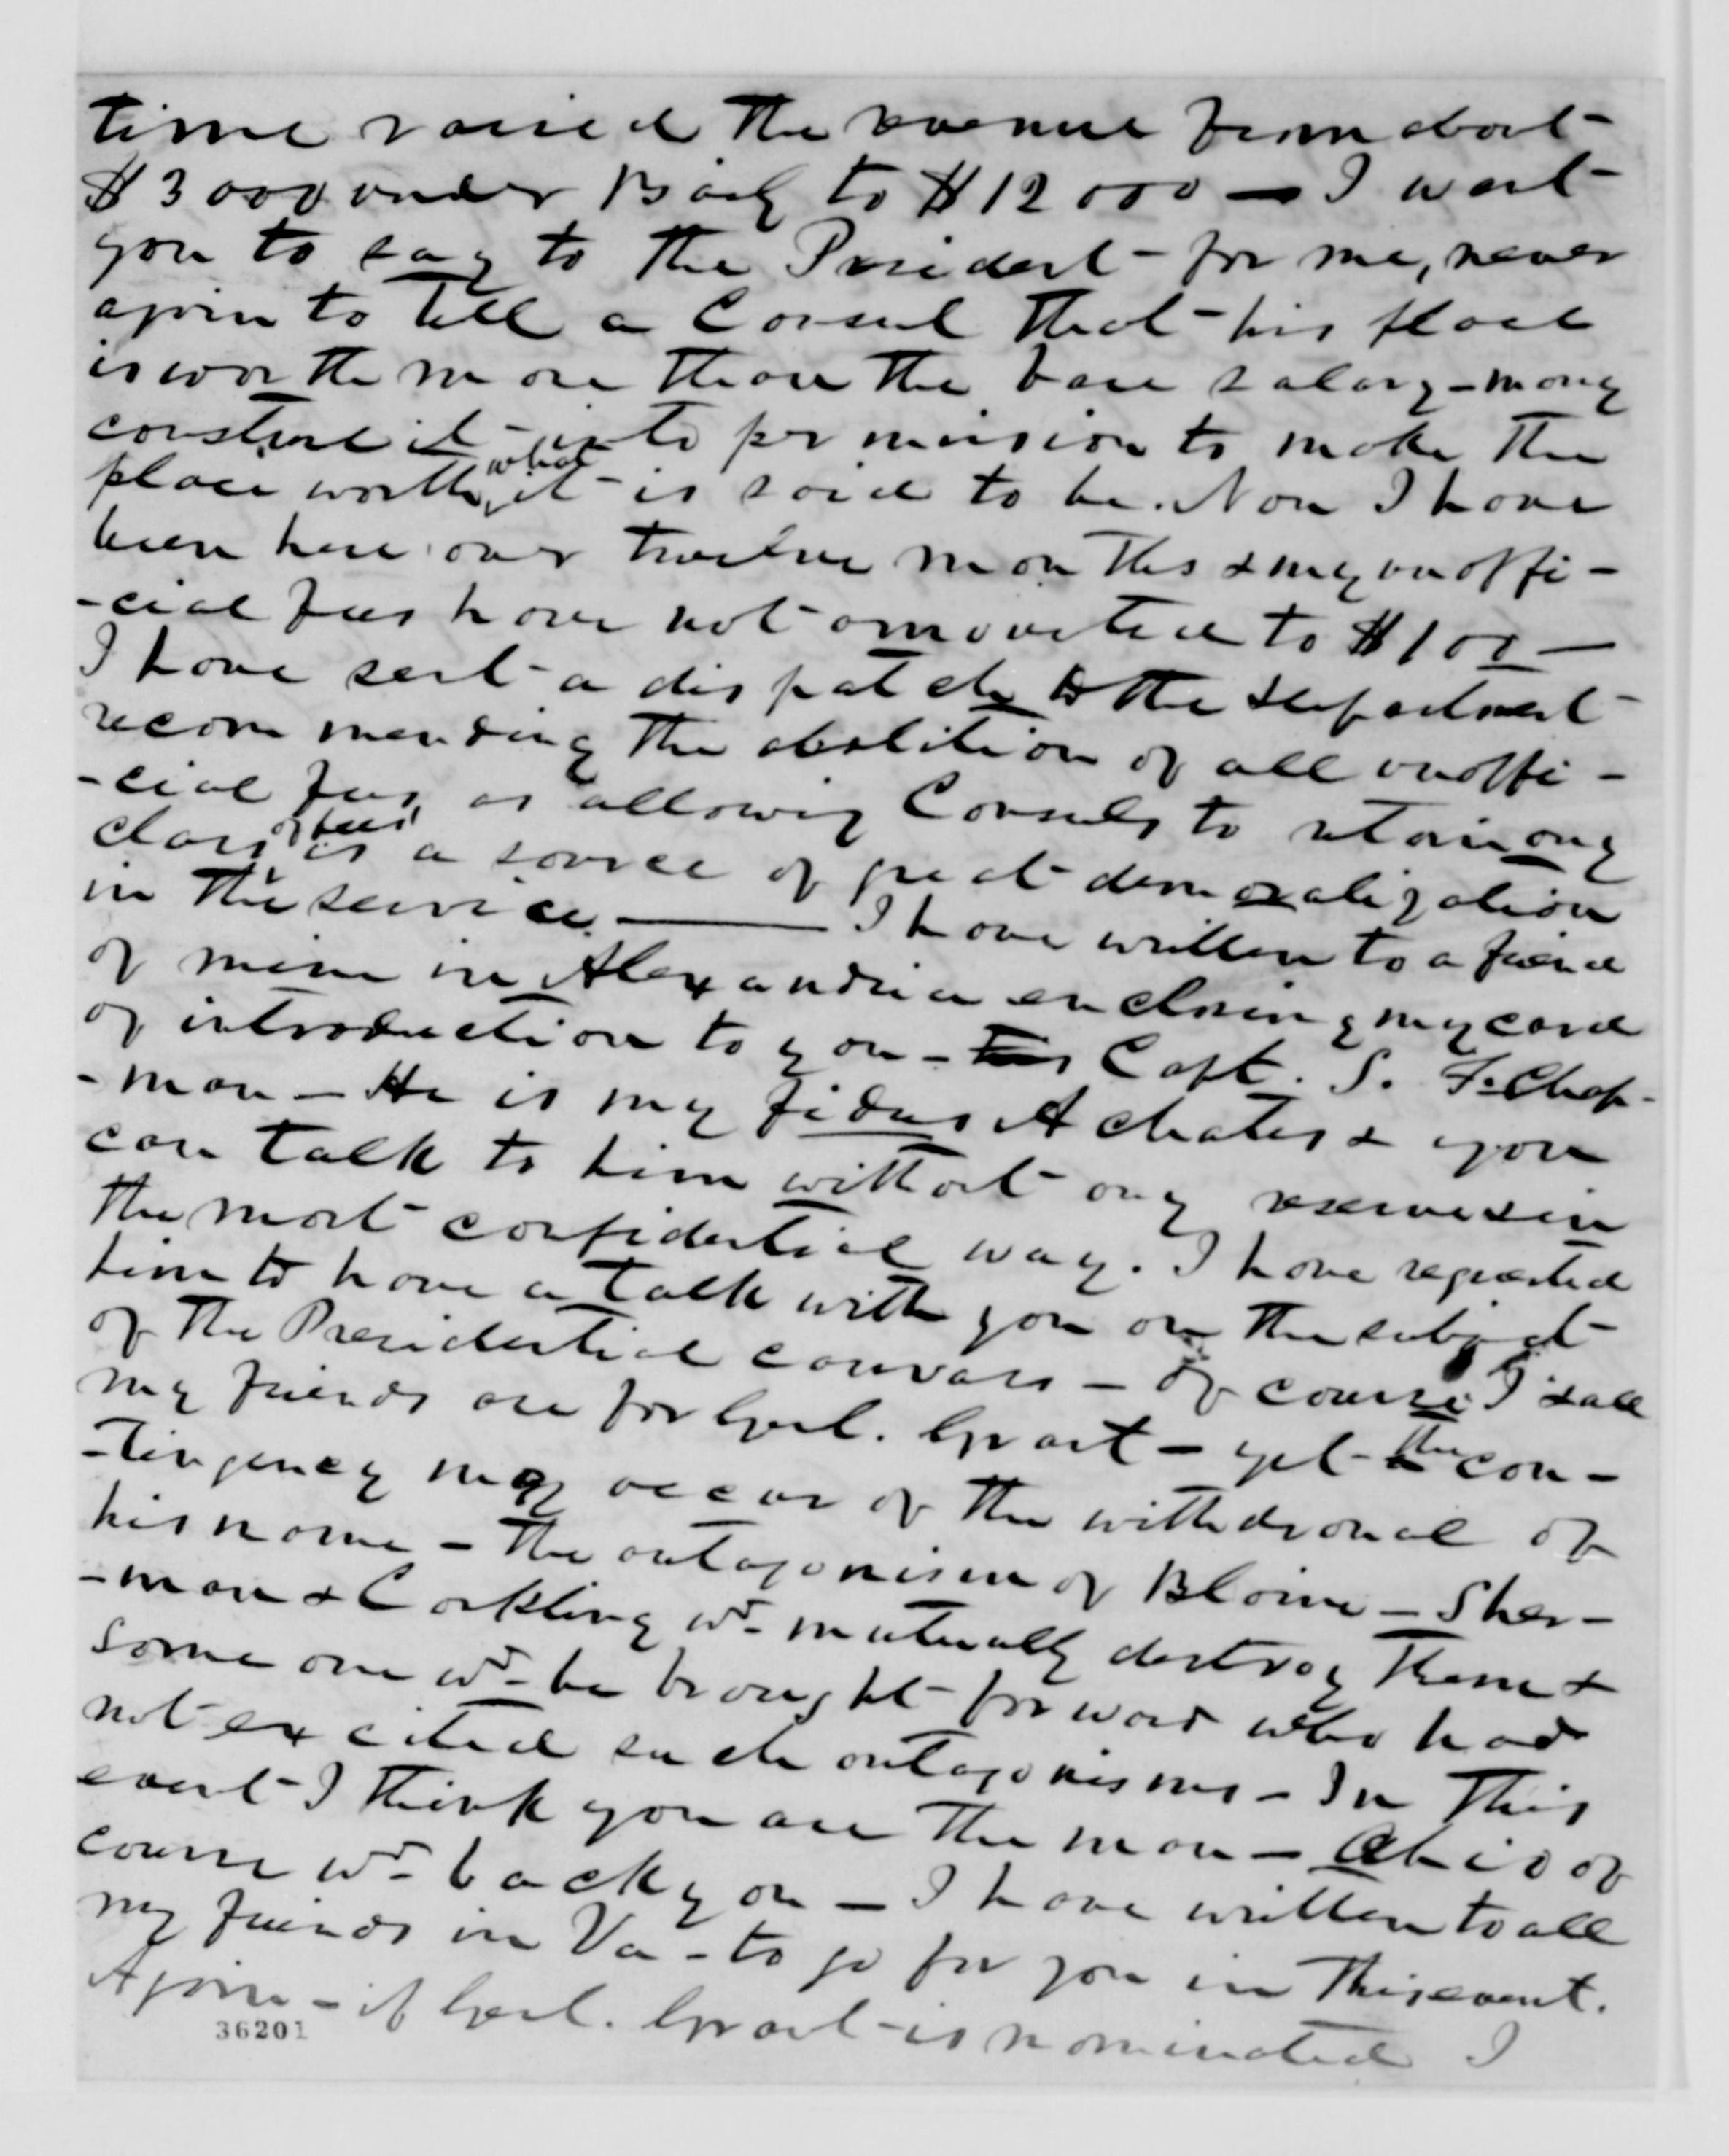 time raised the revenue from about
$3000 under Baily to $12000 — I want
you to say to the President - for me, never
again to tell a Consul that his place
is worth more than the bare salary - many
construe it into permission to make the
place worth what it is said to be. Now I have
been here over twelve months & my unoffi-
-cial fees have not amounted to $100 —
I have sent a dispatch to the Department
recommending the abolition of all unoffi-
-cial fees, as allowing Consuls to retain any
class of fees is a source of great demoralization
in the service. — I have written to a friend
of mine in Alexandria enclosing my card
of introduction to you - Capt. S. F. Chap-
-man - He is my fidus Achates & you
can talk to him without any reserve & in
the most confidential way. I have requested
him to have a talk with you on the subject
of the Presidential canvass - Of course I & all
my friends are for Genl. Grant - yet the con-
-tingency may occur of the withdrawal of
his name - The antagonism of Blaine - Sher-
-man & Conkling wd. mutually destroy them &
some one wd. be brought forward who had
not excited such antagonisms - In this
event I think you are the man - Ohio of
course wd. back you - I have written to all
my friends in Va - to go for you in this event.
Again - if Genl. Grant is nominated I
36201